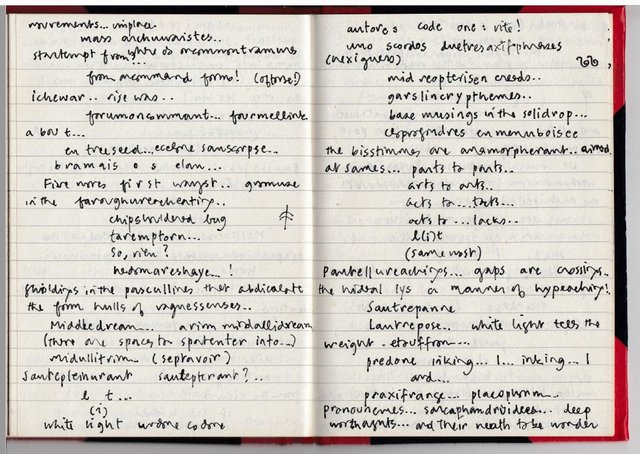 movements... implace
mass archuuaistes..
startempt from?... where os or common trammes
from or command forms! (oftorse!)
ichewar.. rise was..
forumoncommant... fourmellink
about...
en treeseed... ecorne sanscorpse...
bramais o s elan...
Five mores first wayst..
in the
chipshuldered bug
taremptorn...
So, rien?
hedomareshaye...!
in the pascullines that abdicalate
the form hulls of vaguessenses..
Middledream... arim mirdallidream
(there are spaces to spatenter into...)
midullitrim (septavoir)
Sautepleihurant sautepterant?..
l t...
(i)
white light undone codone
autores code one: vite!
uno scordos duetresaxifraphrases
(nexigness)
mid reopterisen creeds..
garslincrypthemes..
base musings in the solidrop...
cesprofondres en menuboisee
the bisstimmes are anamorpherant.. aimed
at sames... parts to parts..
arts to arts..
acts to...tacts...
acts to...lacks..
l(i)t
(same wast)
gaps are crossings..
the nidsal lys a manner of hypeaching!
Sautrepanne
Lautrepose.. white light tells the
weight. etouffron...
predone inking... I... inking... I
and...
praxifrange... placophorm...
pronounemes... deep
... and their neath to be wonder